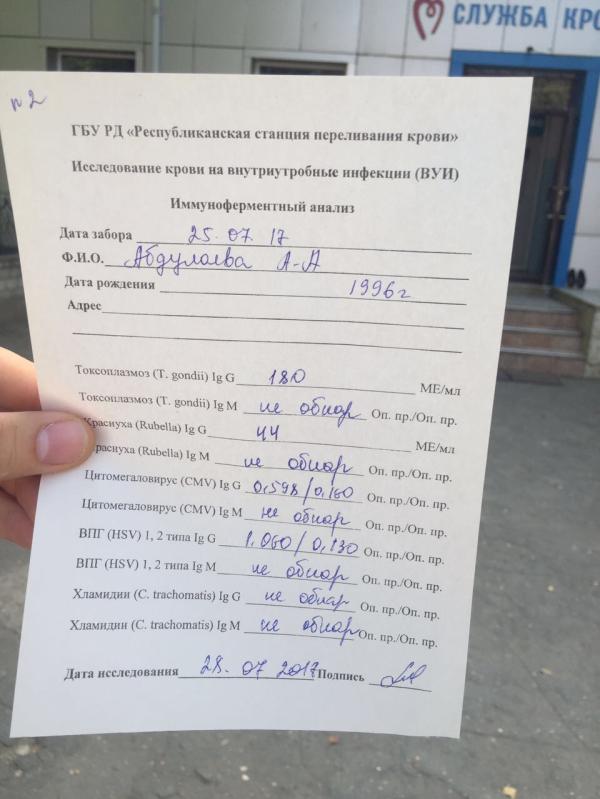 СЛУЖБА КРО
п 2
ГБУ РД «Республиканская станция переливания крови»
Исследование крови на внутриутробные инфекции (ВУИ)
Иммуноферментный анализ
Дата забора 25.07.17
Ф.И.О. Абдулаева А-А
Дата рождения 1996г
Адрес
Токсоплазмоз (T. gondii) Ig G 180 МЕ/мл
Токсоплазмоз (T. gondii) Ig M не обнар Оп. пр./Оп. пр.
Краснуха (Rubella) Ig G 44 МЕ/мл
Краснуха (Rubella) Ig M не обнар Оп. пр./Оп. пр.
Цитомегаловирус (CMV) Ig G 0,598/0,160 Оп. пр./Оп. пр.
Цитомегаловирус (CMV) Ig M не обнар Оп. пр./Оп. пр.
ВПГ (HSV) 1, 2 типа Ig G 1,060/0,130 Оп. пр./Оп. пр.
ВПГ (HSV) 1, 2 типа Ig M не обнар Оп. пр./Оп. пр.
Хламидии (C. trachomatis) Ig G не обнар Оп. пр./Оп. пр.
Хламидии (C. trachomatis) Ig M не обнар Оп. пр./Оп. пр.
Дата исследования 28.07 2017 Подпись